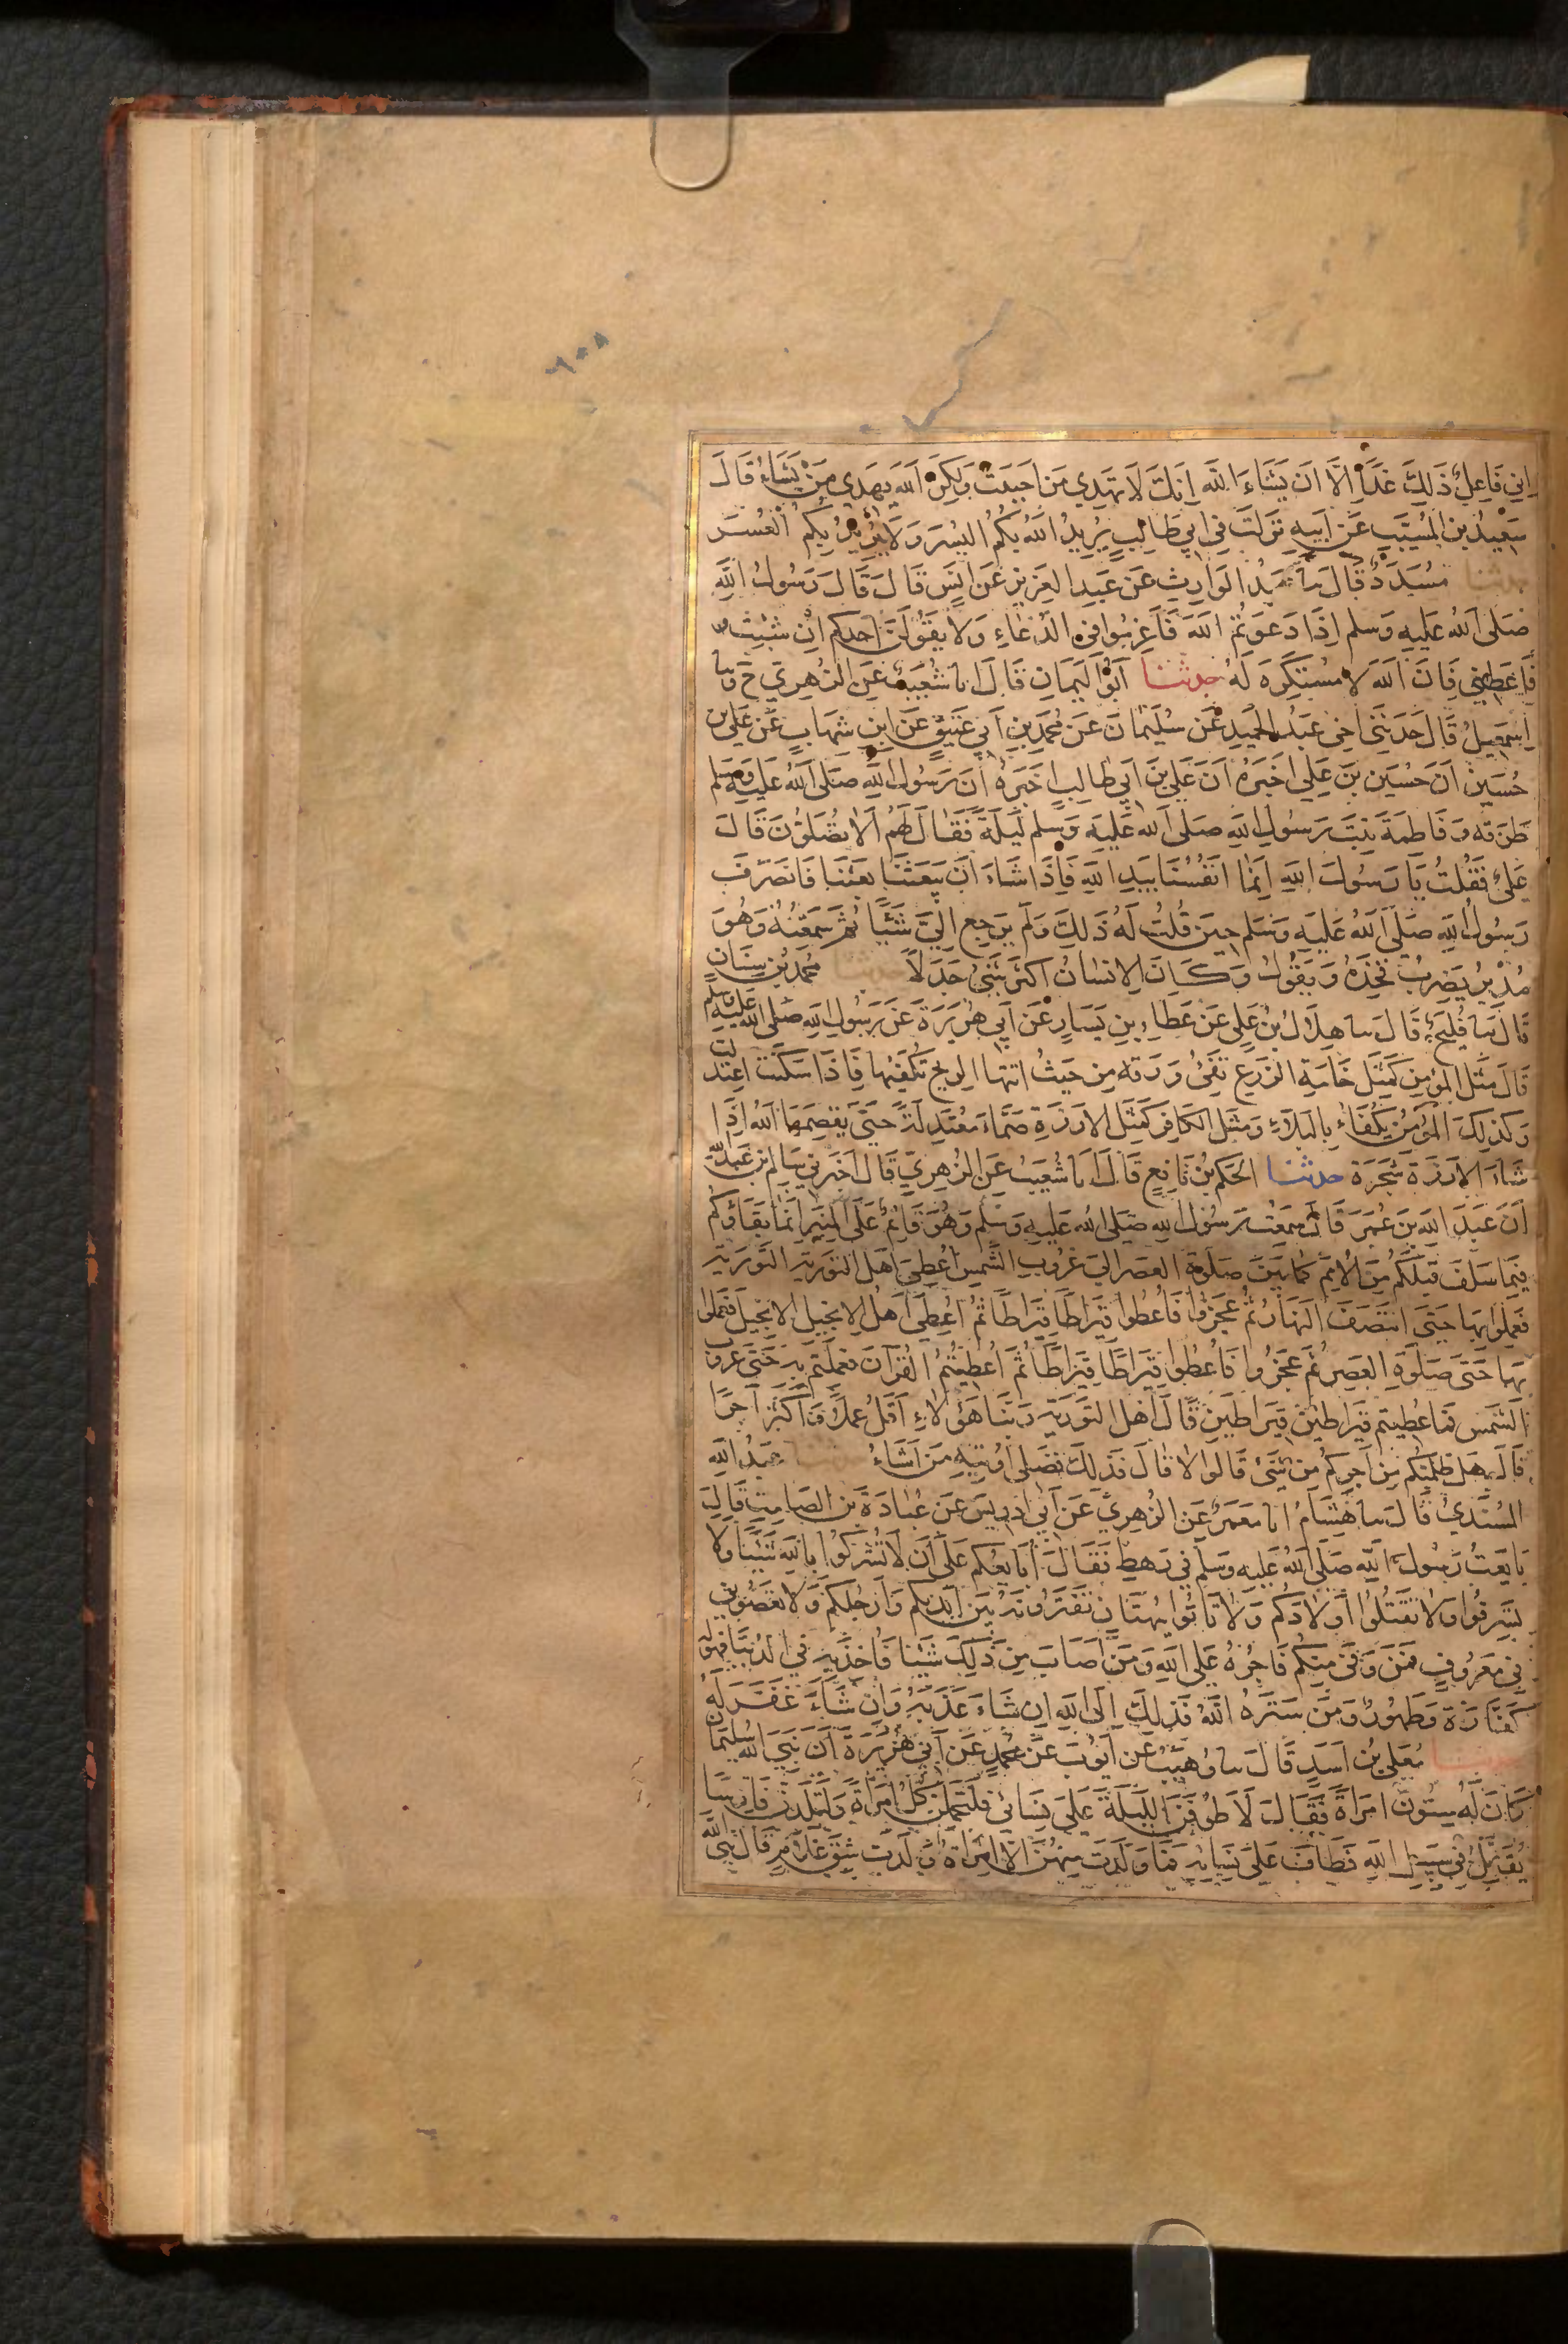 ٦٠٨
اني فاعل ذلك غدا الا ان يشاء الله انك لا تهدي من احببت ولكن الله يهدي من يشاء قال
سعيد بن المسيب عن ابيه نزلت في ابي طالب يريد الله بكم اليسر ولا يريد بكم العسر
حدثنا مسدد قال سا عبد الوارث عن عبد العزيز عن انس قال قال رسول الله
صلى الله عليه وسلم اذا دعوتم الله فاعزموا في الدعاء ولا يقولن احدكم ان شئت
فاعطني فان الله لا مستكره له حدثنا ابو اليمان قال انا شعيب عن الزهري ح وسا
اسمعيل قال حدثني اخي عبد الحميد عن سليمان عن محمد بن ابي عتيق عن ابن شهاب عن علي بن
حسين ان حسين بن علي اخبره ان علي بن ابي طالب اخبره ان رسول الله صلى الله عليه وسلم
طرقه وفاطمة بنت رسول الله صلى الله عليه وسلم ليلة فقال لهم الا تصلون قال
علي فقلت يا رسول الله انما انفسنا بيد الله فاذا شاء ان يبعثنا بعثنا فانصرف
رسول الله صلى الله عليه وسلم حين قلت له ذلك ولم يرجع الي شيئا ثم سمعته وهو
مدبر يضرب فخذه ويقول وكان الانسان اكثر شئ جدلا حدثنا محمد بن سنان
قال سا فليح قال سا هلال بن علي عن عطاء بن يسار عن ابي هريرة عن رسول الله صلى الله عليه وسلم
قال مثل المؤمن كمثل خامة الزرع تفئ ورقه من حيث اتتها الريح تكفئها فاذا سكنت اعتدلت
وكذلك المؤمن يكفأ بالبلاء ومثل الكافر كمثل الارزة صماء معتدلة حتى يقصمها الله اذا
شاء الارزة شجرة حدثنا الحكم بن نافع قال انا شعيب عن الزهري قال اخبرني سالم بن عبد الله
ان عبد الله بن عمر قال سمعت رسول الله صلى الله عليه وسلم وهو قائم على المنبر انما بقاؤكم
فيما سلف قبلكم من الامم كما بين صلوة العصر الى غروب الشمس اعطي اهل التورية التورية
فعملوا بها حتى انتصف النهار ثم عجزوا فاعطوا قيراطا قيراطا ثم اعطي اهل الانجيل الانجيل فعملوا
بها حتى صلوة العصر ثم عجزوا فاعطوا قيراطا قيراطا ثم اعطيتم القرآن فعملتم به حتى غروب
الشمس فاعطيتم قيراطين قيراطين قال اهل التورية ربنا هؤلاء اقل عملا واكثر اجرا
قال هل ظلمتكم من اجركم من شئ قالوا لا قال فذلك فضلي اوتيه من اشاء حدثنا عبد الله
المسندي قال سا هشام انا معمر عن الزهري عن ابي ادريس عن عبادة بن الصامت قال
بايعت رسول الله صلى الله عليه وسلم في رهط فقال ابايعكم على ان لا تشركوا بالله شيئا ولا
تسرقوا ولا تقتلوا اولادكم ولا تاتوا ببهتان تفترونه بين ايديكم وارجلكم ولا تعصوني
في معروف فمن وفى منكم فاجره على الله ومن اصاب من ذلك شيئا فاخذ به في الدنيا فهو له
كفارة وطهور ومن ستره الله فذلك الى الله ان شاء عذبه وان شاء غفر له
حدثنا معلى بن اسد قال سا وهيب عن ايوب عن محمد عن ابي هريرة ان نبي الله سليمان
كان له ستون امراة فقال لاطوفن الليلة على نسائي فلتحملن كل امراة ولتلدن فارسا
يقاتل في سبيل الله فطاف على نسائه فما ولدت منهن الا امراة ولدت شق غلام قال نبي الله